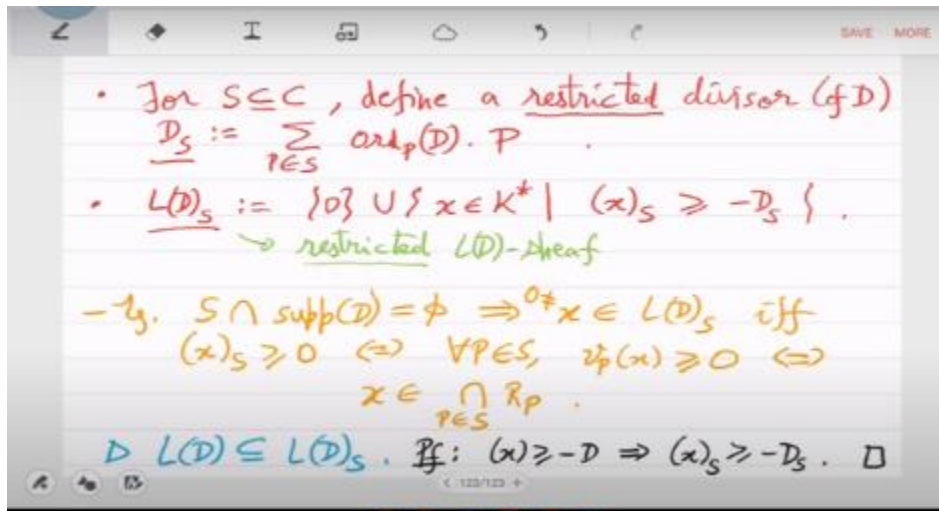 SAVE MORE
• For S⊆C, define a restricted divisor (of D)
D_S := Σ_{P∈S} ord_P(D). P .
• L(D)_S := {0} ∪ { x ∈ K* | (x)_S ≥ -D_S } .
restricted L(D)-sheaf
- Eg. S ∩ supp(D) = ϕ ⇒ 0≠ x ∈ L(D)_S iff
(x)_S ≥ 0 ⇔ ∀P∈S, v_P(x) ≥ 0 ⇔
x ∈ ∩_{P∈S} R_P .
▷ L(D) ⊆ L(D)_S . Pf: (x) ≥ -D ⇒ (x)_S ≥ -D_S . □
< 123/123 +